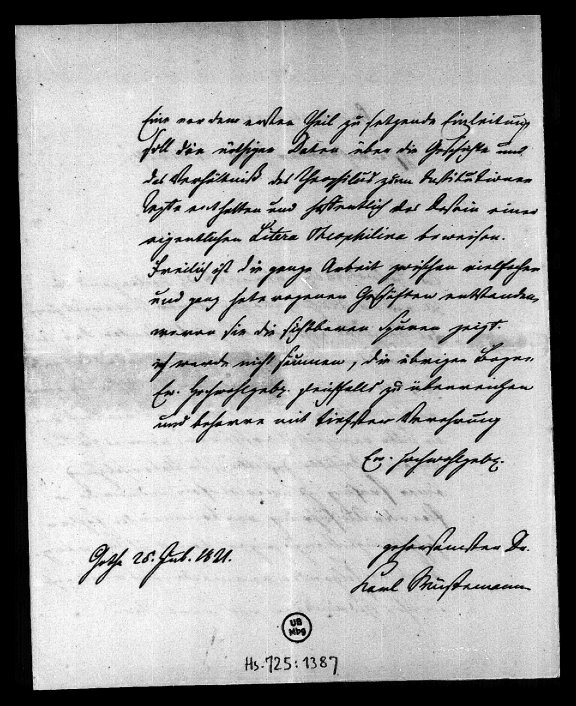 Eine vor dem ersten Theil zu setzende Einleitung
soll die nöthigen Daten über die Geschichte und
das Verhältniß des Theophilus zum Institutionen
Texte enthalten und hoffentlich das Dasein einer
eigentlichen Litera Theophilina beweisen.
Freilich ist die ganze Arbeit zwischen vielfachen
und ganz heterogenen Geschäften entstanden,
wovon sie die sichtbaren Spuren zeigt.
ich werde nicht säumen, die übrigen Bogen
Ew. Hochwohlgeb. gleichfalls zu überreichen
und beharre mit tiefster Verehrung
Ew. Hochwohlgeb.
gehorsamster Dr.
Gotha 25. 1821.
Karl Wüstemann
UB
Mbg
Hs. 725:1387